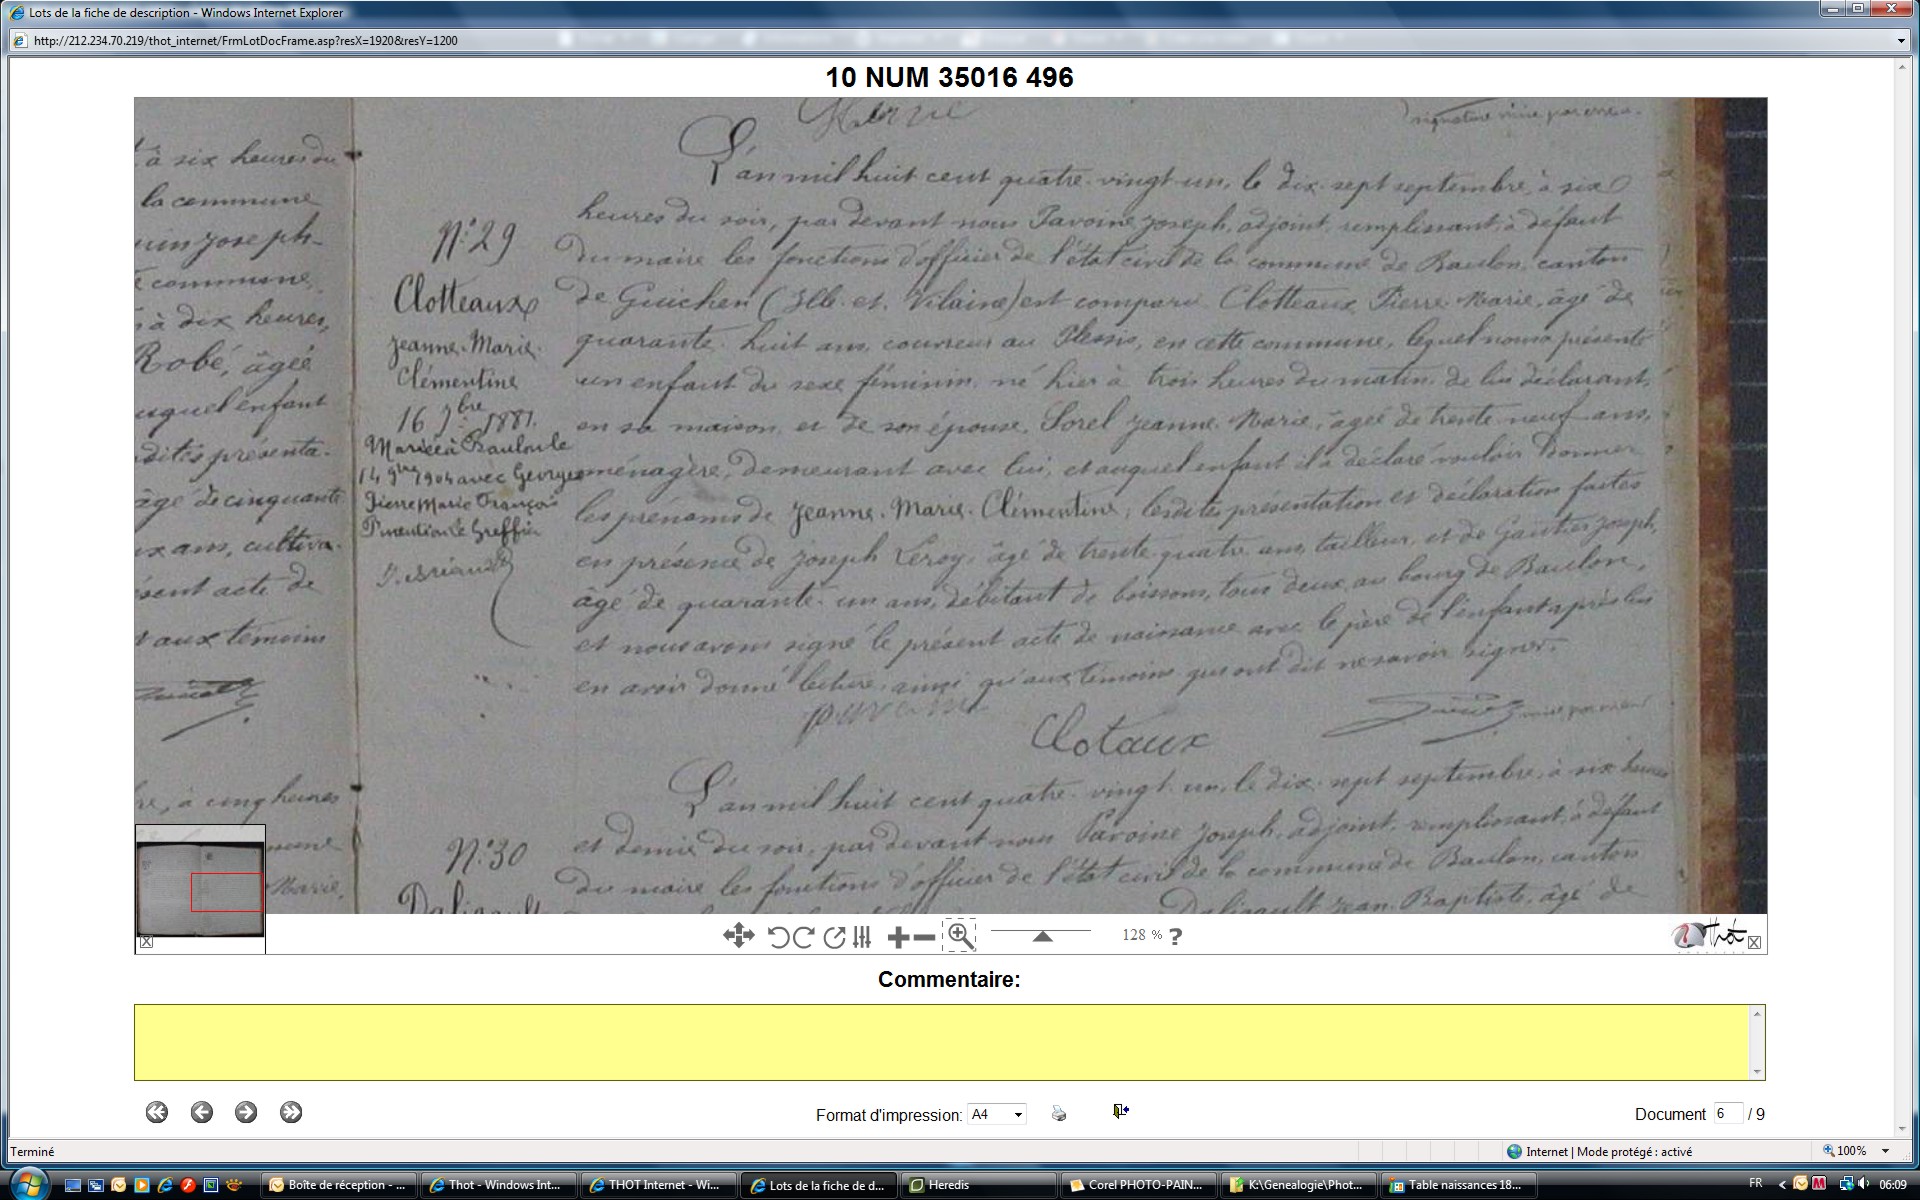 Lots de la fiche de description - Windows Internet Explorer
http://212.234.70.219/thot_internet/FrmLotDocFrame.asp?resX=1920&resY=1200
10 NUM 35016 496
à six heures du
la commune
Joseph
commune
à dix heures,
Robé, âgée
auquel enfant
dites présenta-
âgé de cinquante
ans, cultiva-
présent acte de
aux témoins
à cinq heures
Marie,
N° 29
Clotteaux
Jeanne-Marie-
Clémentine
16 7bre 1881.
Mariée à Baulon le
14 9bre 1904 avec Georges
Pierre Marie François
le Greffier
signature mise par erreur.
L'an mil huit cent quatre-vingt-un, le dix-sept septembre, à six
heures du soir, par devant nous Pavoine Joseph, adjoint, remplissant, à défaut
du maire les fonctions d'officier de l'état civil de la commune de Baulon, canton
de Guichen (Ille-et-Vilaine) est comparu Clotteaux Pierre-Marie, âgé de
quarante-huit ans, couvreur au Plessis, en cette commune, lequel nous a présenté
un enfant du sexe féminin, né hier à trois heures du matin, de lui déclarant,
en sa maison, et de son épouse, Sorel Jeanne-Marie, âgée de trente-neuf ans,
ménagère, demeurant avec lui, et auquel enfant il a déclaré vouloir donner
les prénoms de Jeanne-Marie-Clémentine, lesdites présentation et déclaration faites
en présence de Joseph Leroy, âgé de trente-quatre ans, tailleur, et de Gautier Joseph,
âgé de quarante-un ans, débitant de boissons, tous deux au bourg de Baulon,
et nous avons signé le présent acte de naissance avec le père de l'enfant après lui
en avoir donné lecture, ainsi qu'aux témoins qui ont dit ne savoir signer.
pavoine
Clotaux
mise par erreur
N° 30
L'an mil huit cent quatre-vingt-un, le dix-sept septembre, à six heures
et demie du soir, par devant nous Pavoine Joseph, adjoint, remplissant, à défaut
du maire les fonctions d'officier de l'état civil de la commune de Baulon, canton
Daligault
Daligault Jean-Baptiste, âgé de
128 % ?
Thot
Commentaire:
Format d'impression: A4
Document 6 / 9
Terminé
Internet | Mode protégé : activé
100%
Boîte de réception - ...
Thot - Windows Int...
THOT Internet - Wi...
Lots de la fiche de d...
Heredis
Corel PHOTO-PAIN...
K:\Genealogie\Phot...
Table naissances 18...
FR
06:09